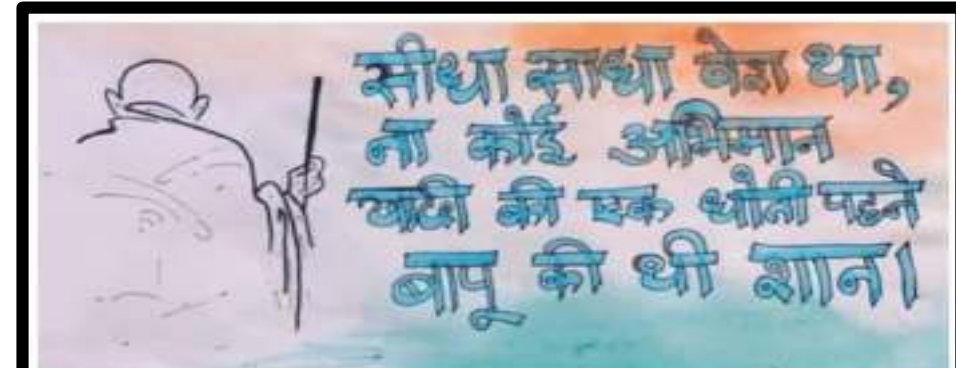 सीधा साधा वेश था,
ना कोई अभिमान
खादी की एक धोती पहने
बापू की थी शान।